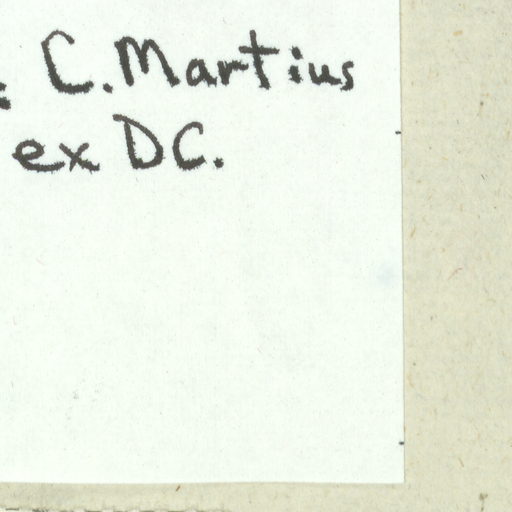 : C. Martius
ex DC.